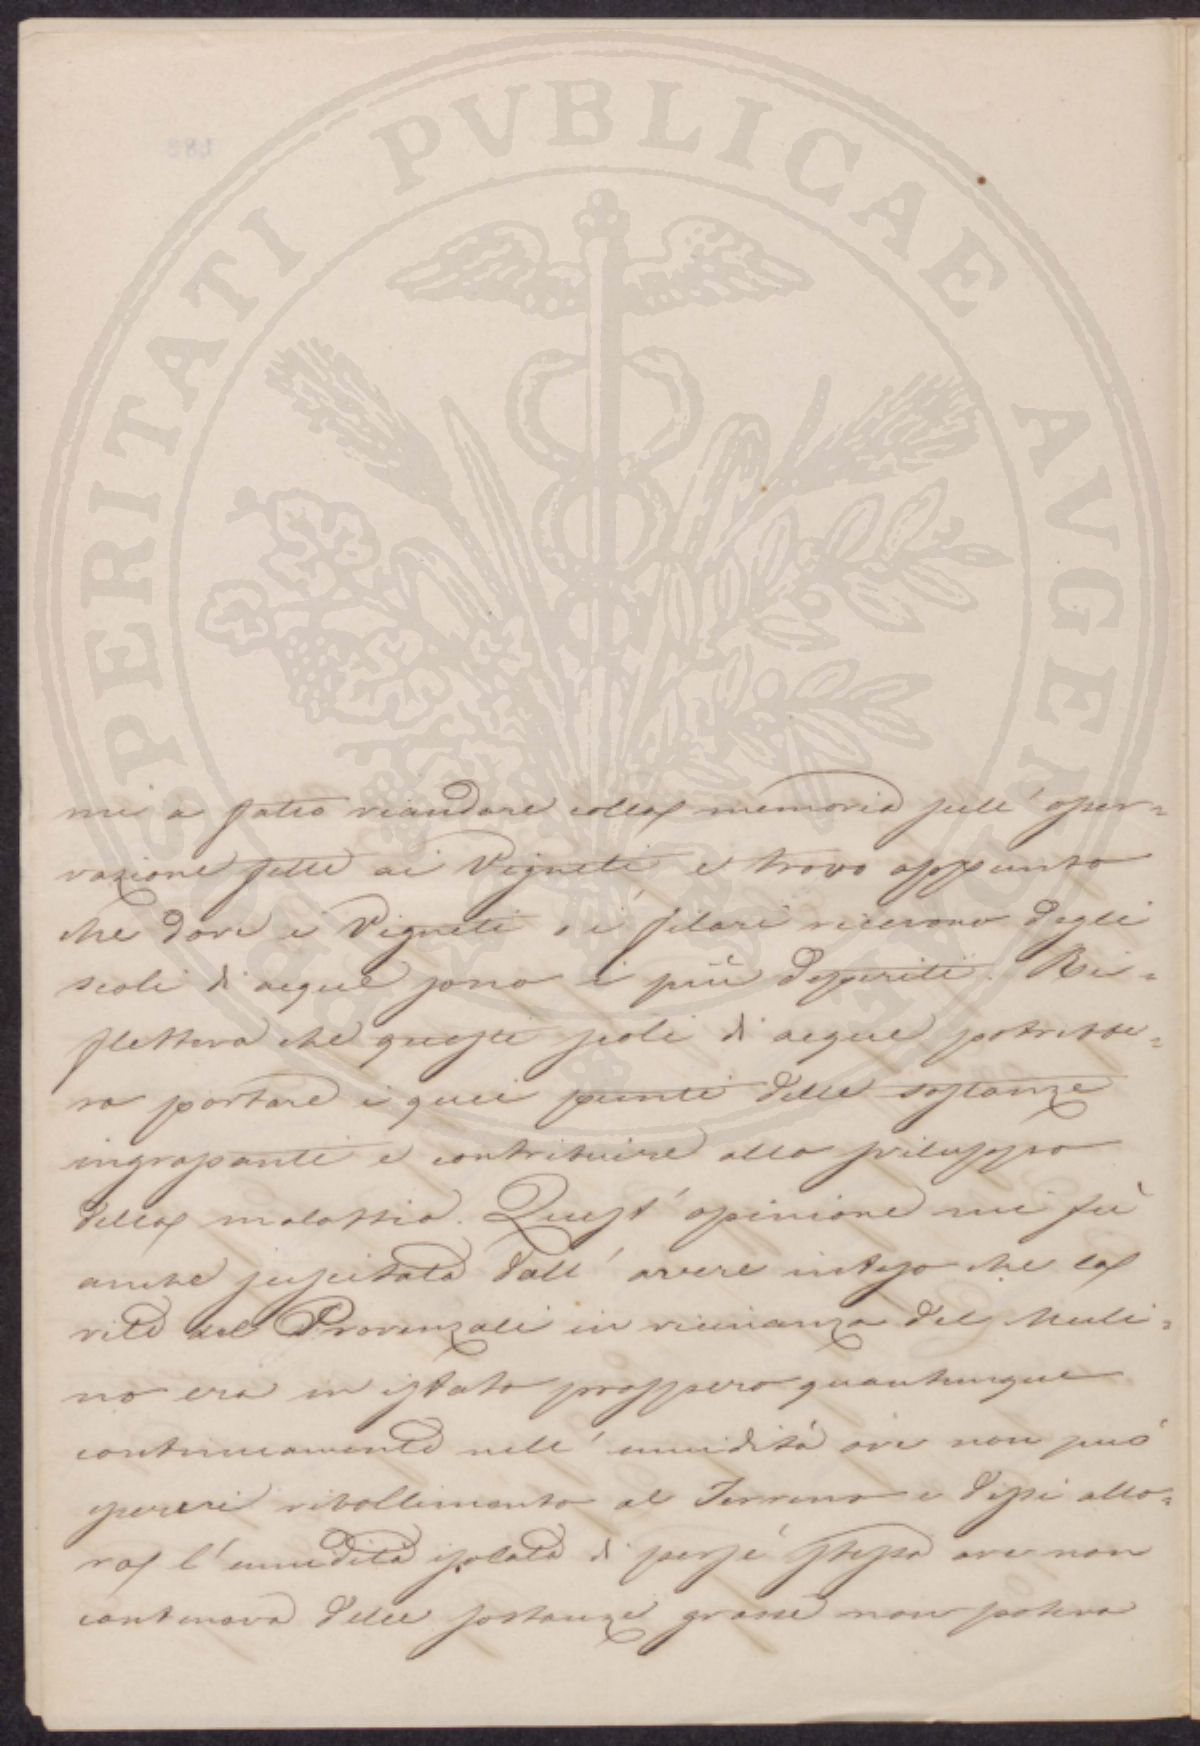 PROSPERITATI PVBLICAE AVGENDAE
mi a fatto riandare colla memoria sull'osser=
vazione fatte ai Vigneti e trovo appunto
che dove i Vigneti o i filari ricevono degli
scoli di acque sono i più deperiti. Ri=
fletteva che questi scoli di acque potrebbe=
ro portare i quei punti delle sostanze
ingrassanti e contribuire allo sviluppo
della malattia. Quest'opinione mi fù
anche suscitata dall'avere inteso che la
vite del Provenzali in vicinanza del Muli=
no era in istato prospero quantunque
continuamente nell'umidità ove non può
esservi ribollimento al Terreno e dissi allo=
ra l'umidità isolata di persé stessa ove non
conteneva delle sostanze grasse non poteva